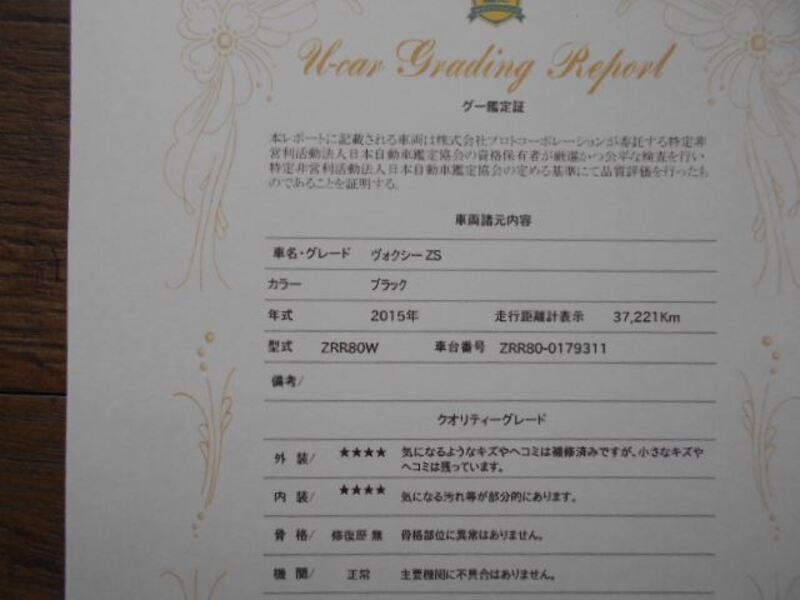 U-car Grading Report
グー鑑定証
本レポートに記載される車両は株式会社プロトコーポレーションが委託する特定非
営利活動法人日本自動車鑑定協会の資格保有者が厳選かつ公平な検査を行い
特定非営利活動法人日本自動車鑑定協会の定める基準にて品質評価を行ったも
のであることを証明する。
車両諸元内容
車名・グレード ヴォクシー ZS
カラー ブラック
年式 2015年 走行距離計表示 37,221Km
型式 ZRR80W 車台番号 ZRR80-0179311
備考/
クオリティーグレード
外 装/ ★★★★ 気になるようなキズやヘコミは補修済みですが、小さなキズや
ヘコミは残っています。
内 装/ ★★★★ 気になる汚れ等が部分的にあります。
骨 格/ 修復歴 無 骨格部位に異常はありません。
機 関/ 正常 主要機関に不具合はありません。